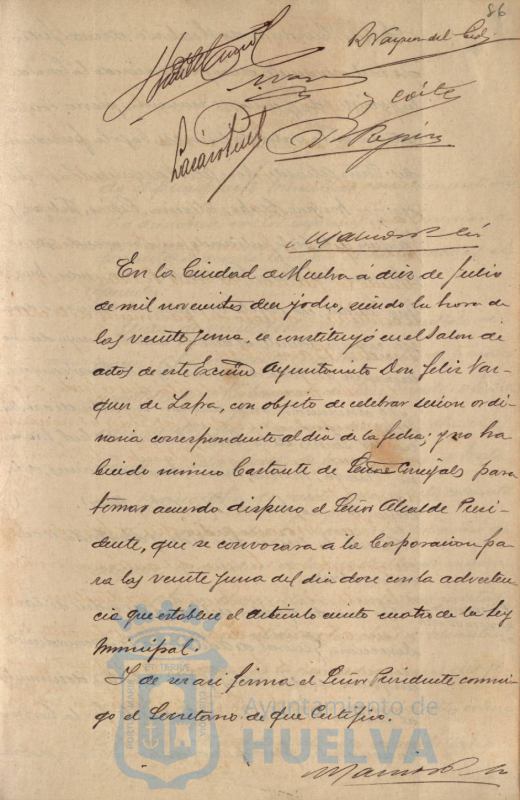 86
y Cortes
En la Ciudad de Huelva á diez de Julio
de mil novecientos diez y ocho, siendo la hora de
las veinte y una, se constituyó en el Salon de
actos de este Excmo Ayuntamiento Don Felix Vaz-
quez de Zafra, con objeto de celebrar sesion ordi-
naria correspondiente al dia de la fecha; y no ha-
biendo número bastante de Señores Concejales para
tomar acuerdo dispuso el Señor Alcalde Presi-
dente, que se convocara á la Corporacion pa-
ra las veinte y una del dia doce con la adverten-
cia que establece el artículo ciento cuatro de la Ley
Municipal.
Y de ser asi firma el Señor Presidente conmi-
go el Secretario de que Certifico.
Ayuntamiento de
HUELVA